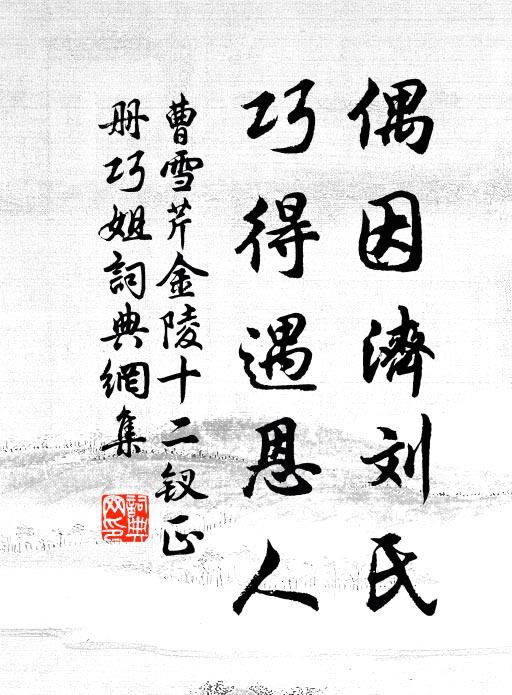 偶因濟刘氏
巧得遇恩人
曹雪芹金陵十二釵正
册巧姐詞典網集
詞典
网印